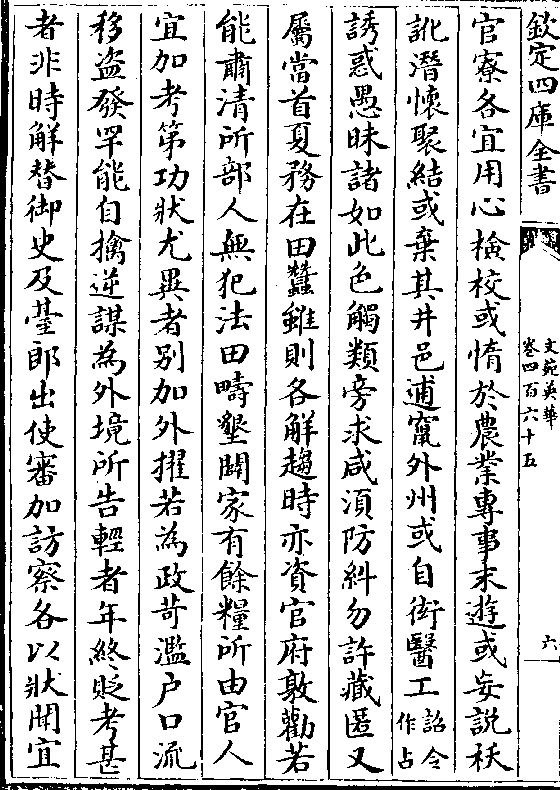 欽定四庫全書
文苑英華
卷四百六十五
六
官寮各宜用心檢校或惰於農業專事末遊或妄説祅
訛潛懷聚結或棄其井邑逋竄外州或自衒醫工詔令作占
誘惑愚昧諸如此色觸類旁求咸湏防糾勿許藏匿又
屬當首夏務在田蠶雖則各解趨時亦資官府敦勸若
能肅清所部人無犯法田疇墾闢家有餘糧所由官人
宜加考第功狀尤異者别加外擢若為政苛濫户口流
移盗發罕能自擒逆謀為外境所告輕者年終貶考甚
者非時解替御史及臺郎出使審加訪察各以狀聞宜